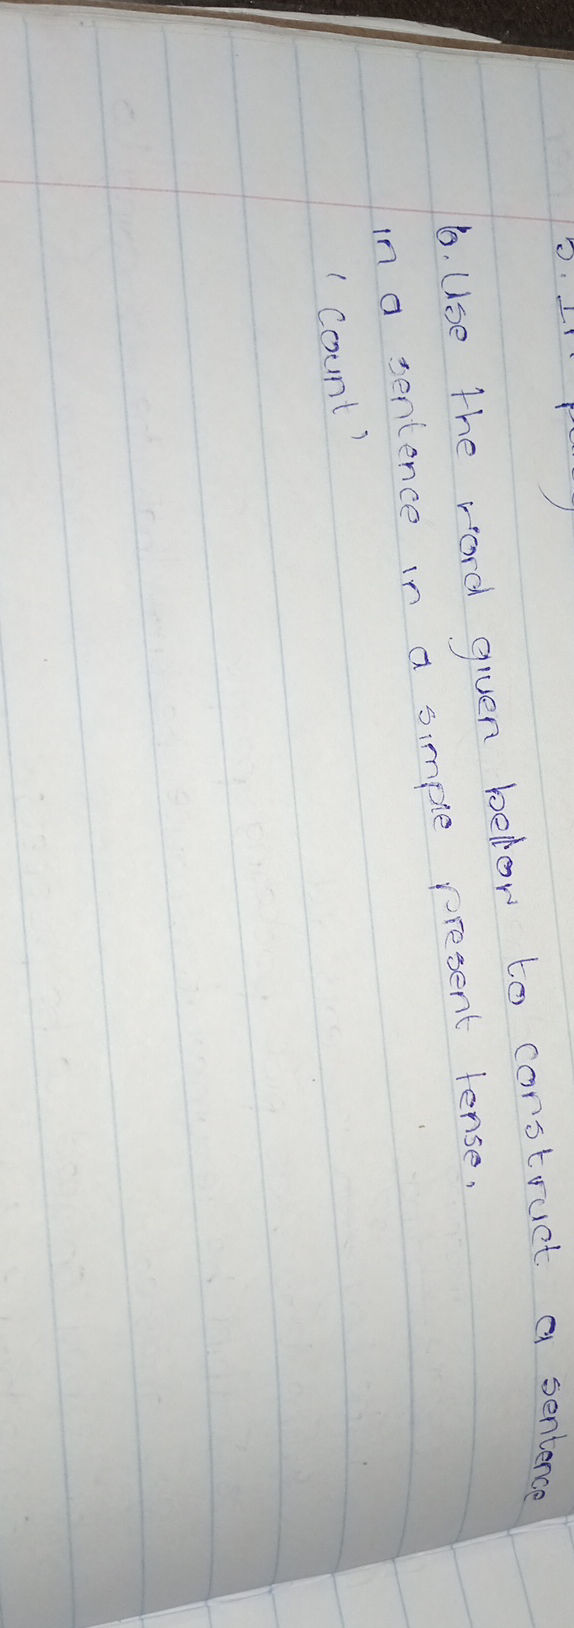 5. If
6. Use the word given below to construct a sentence
in a sentence in a simple present tense.
'count'